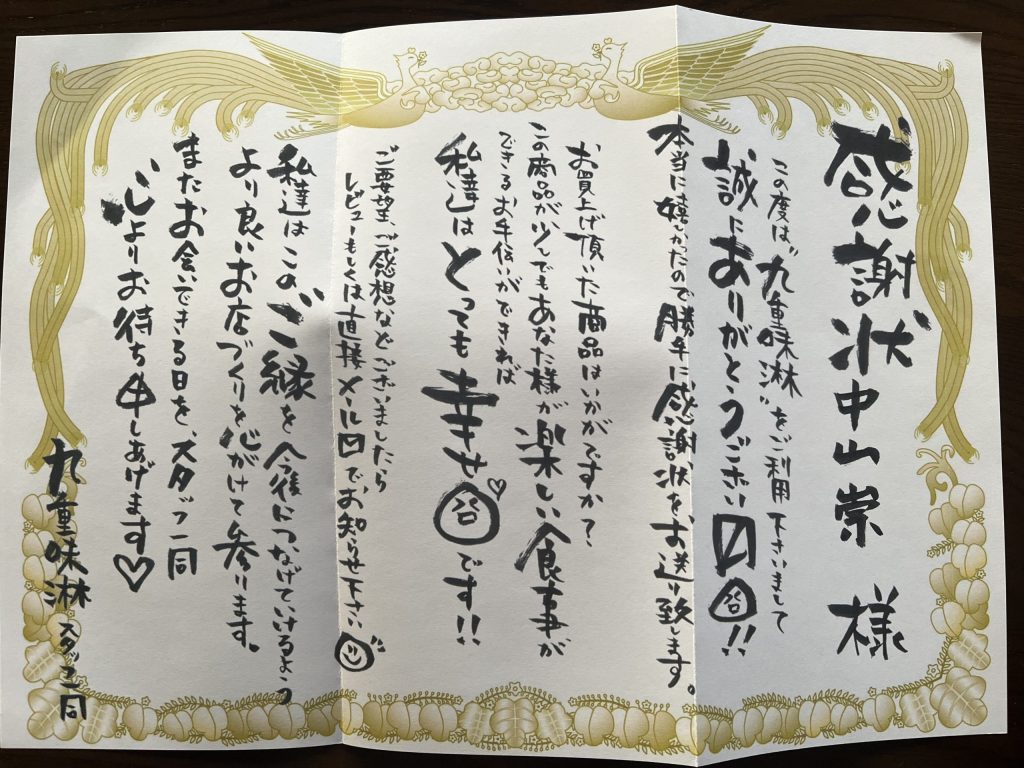 感謝状 中山崇 様
この度は"九重味淋"をご利用下さいまして
誠にありがとうございます!!
本当に嬉しかったので勝手に感謝状をお送り致します。
お買上げ頂いた商品はいかがですか?
この商品が少しでもあなた様が楽しい食事が
できるお手伝いができれば
私達はとっても幸せです!!
ご要望、ご感想などございましたら
レビューもしくは直接メールで、お知らせ下さい
私達はこのご縁を今後につなげていけるよう
より良いお店づくりを心がけて参ります。
またお会いできる日を、スタッフ一同
心よりお待ち申しあげます♡
九重味淋スタッフ一同